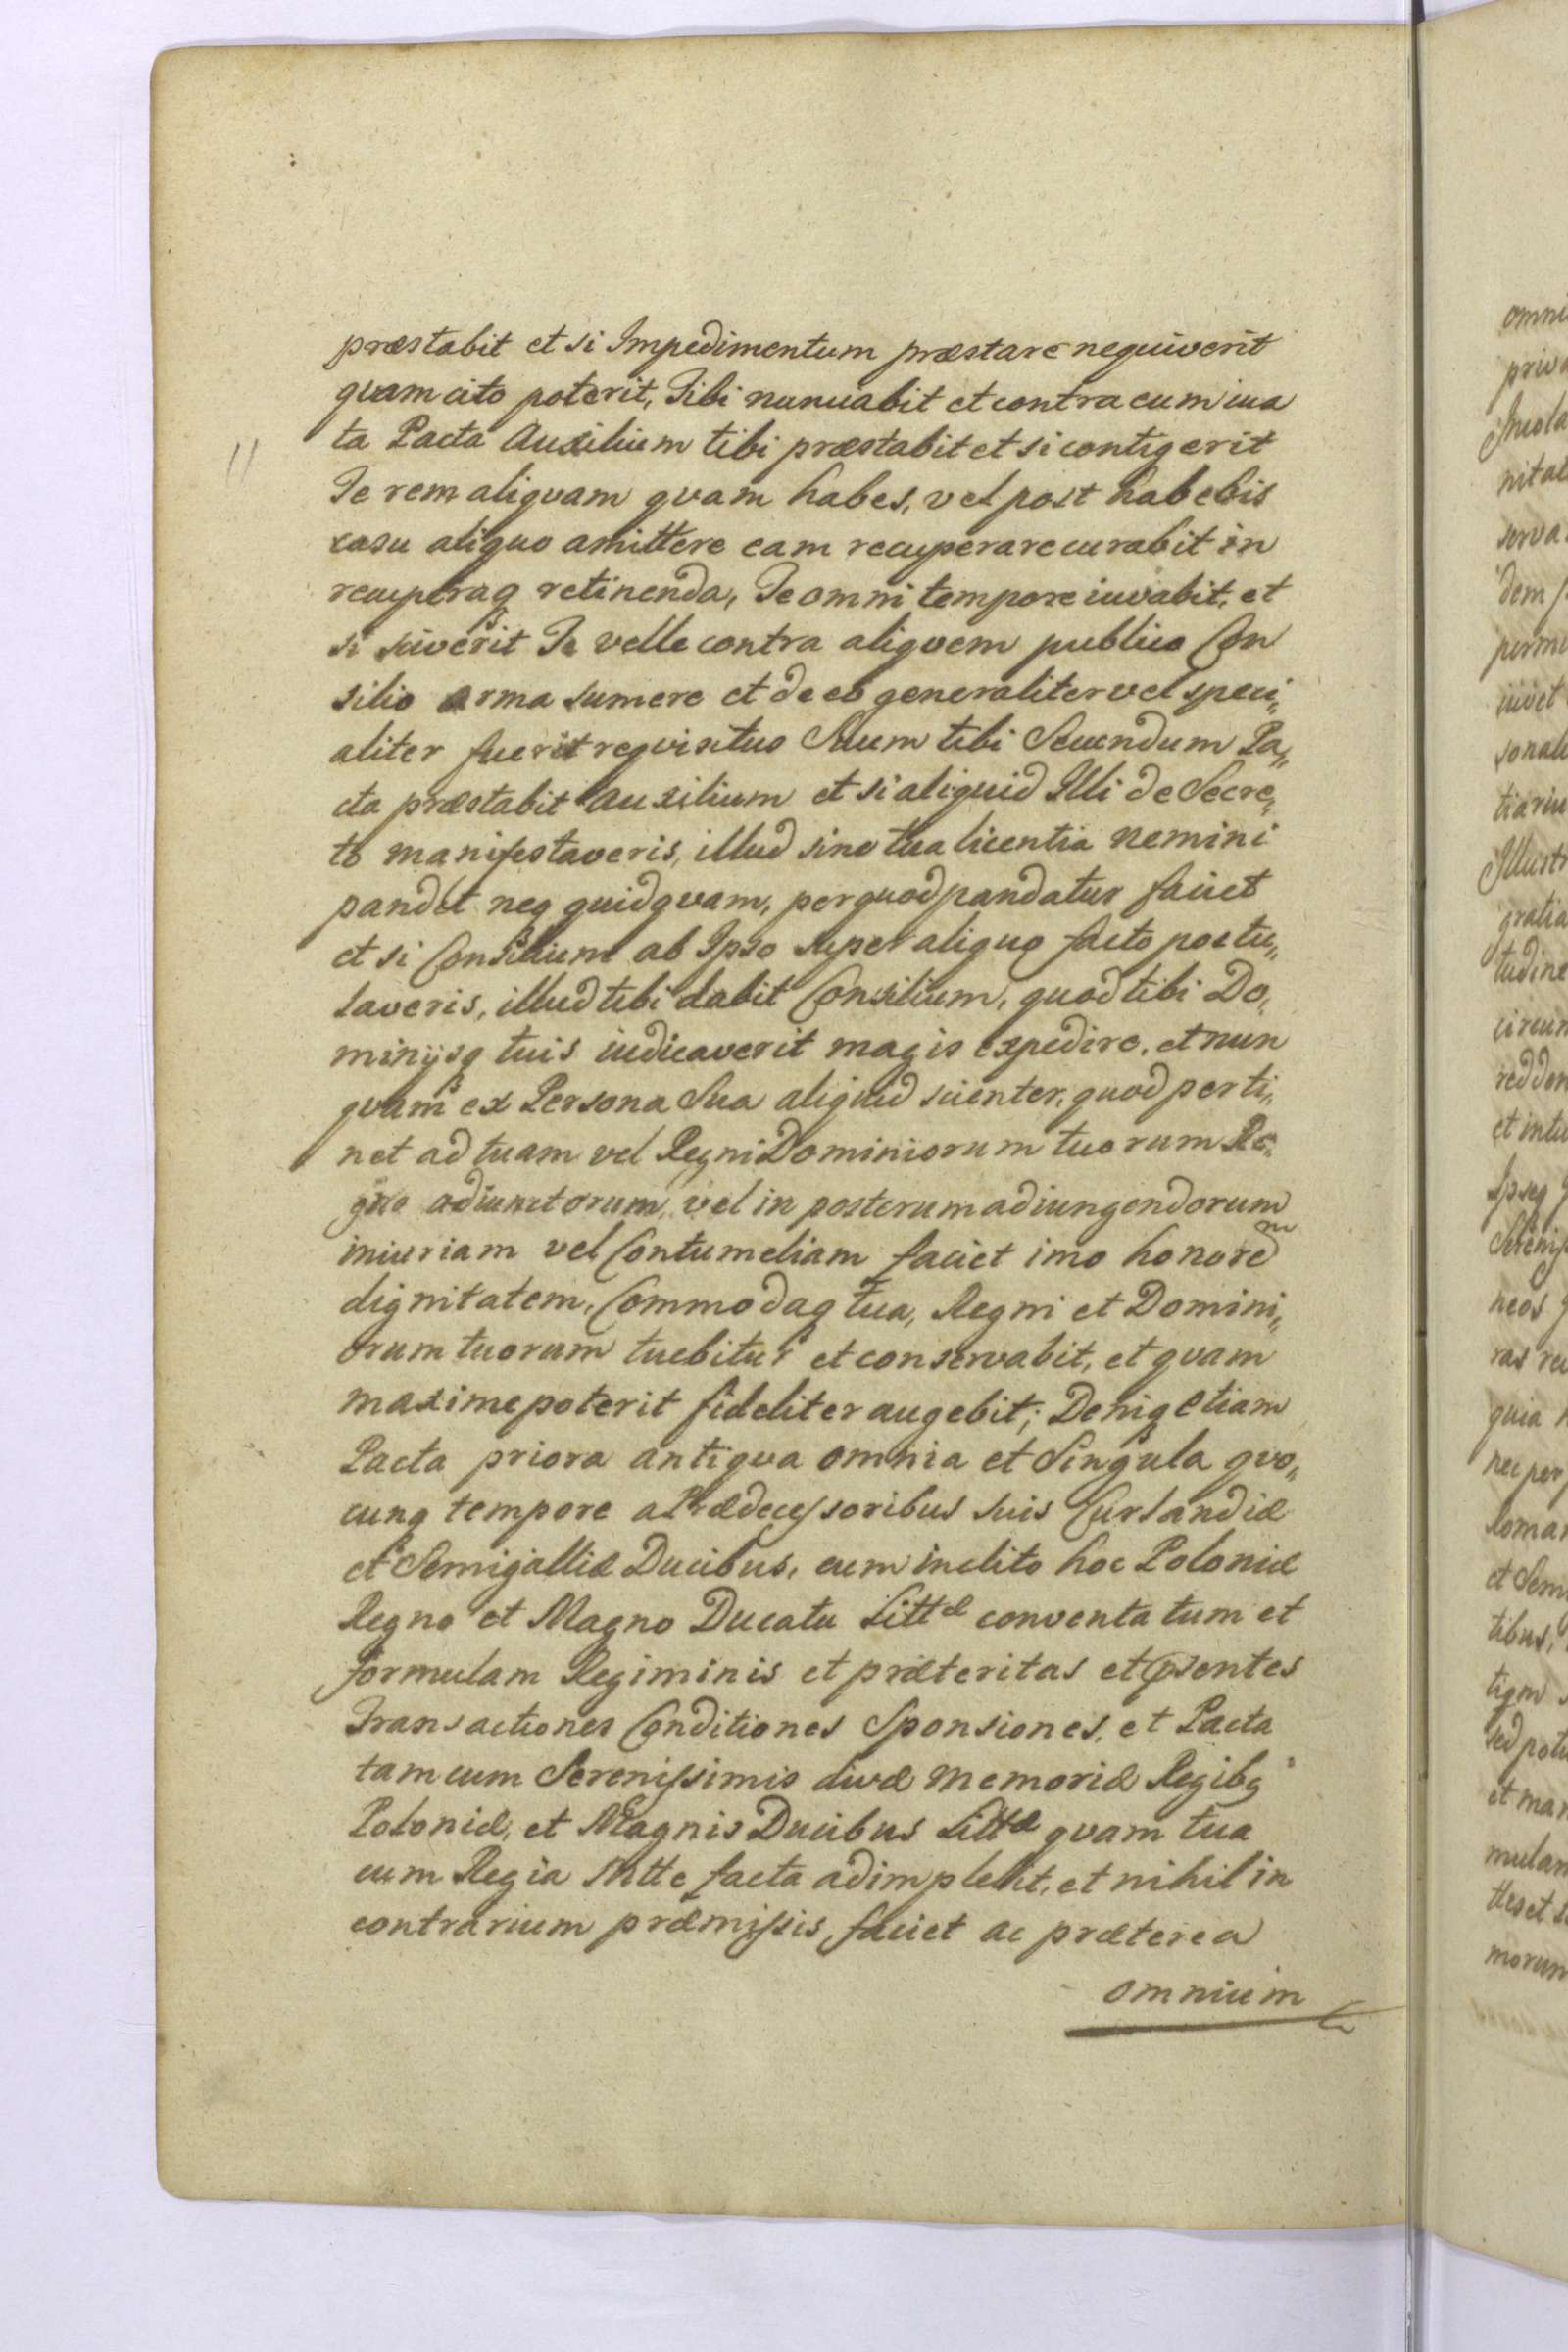 præstabit et si Impedimentum præstare nequiverit
quam cito poterit, Tibi nunciabit et contra eum iuxa
ta Pacta Auxilium tibi præstabit et si contigerit
Te rem aliquam quam habes, vel post habebis
casu aliquo amittere eam recuperare curabit in
recuperaq retinenda, Te omni tempore iuvabit, et
si sciverit Te velle contra aliquem publico Con
silio arma sumere et de eo generaliter vel speci„
aliter fuerit requisitus Suum tibi Secundum Pa„
cta præstabit auxilium et si aliquid Illi de Secre„
to manifestaveris, illud sine tua licentia nemini
pandet neq quidquam, per quod pandatur faciet
et si Consilium ab Ipso super aliquo facto postu„
laveris, illud tibi dabit Consilium, quod tibi Do„
minijsq tuis iudicaverit magis expedire, et nun
quam ex Persona Sua aliquid scienter, quod perti„
net ad tuam vel Regni Dominiorum tuorum Re„
gno adiunctorum, vel in posterum adiungendorum
iniuriam vel Contumeliam faciet imo honorem
dignitatem, Commodaq tua, Regni et Domini„
orum tuorum tuebitur et conservabit, et quam
maxime poterit fideliter augebit; Deniq etiam
Pacta priora antiqua omnia et Singula quo„
cunq tempore a Prædecessoribus suis Curlandiæ
et Semigalliæ Ducibus, cum inclito hoc Poloniæ
Regno et Magno Ducatu Littæ conventa tum et
formulam Regiminis et præteritas et psentes
Transactiones Conditiones Sponsiones, et Pacta
tam cum Serenissimis divæ memoriæ Regibq
Poloniæ, et Magnis Ducibus Littæ quam tua
cum Regia Mtte facta adimplebit, et nihil in
contrarium præmissis faciet ac præterea
omnium